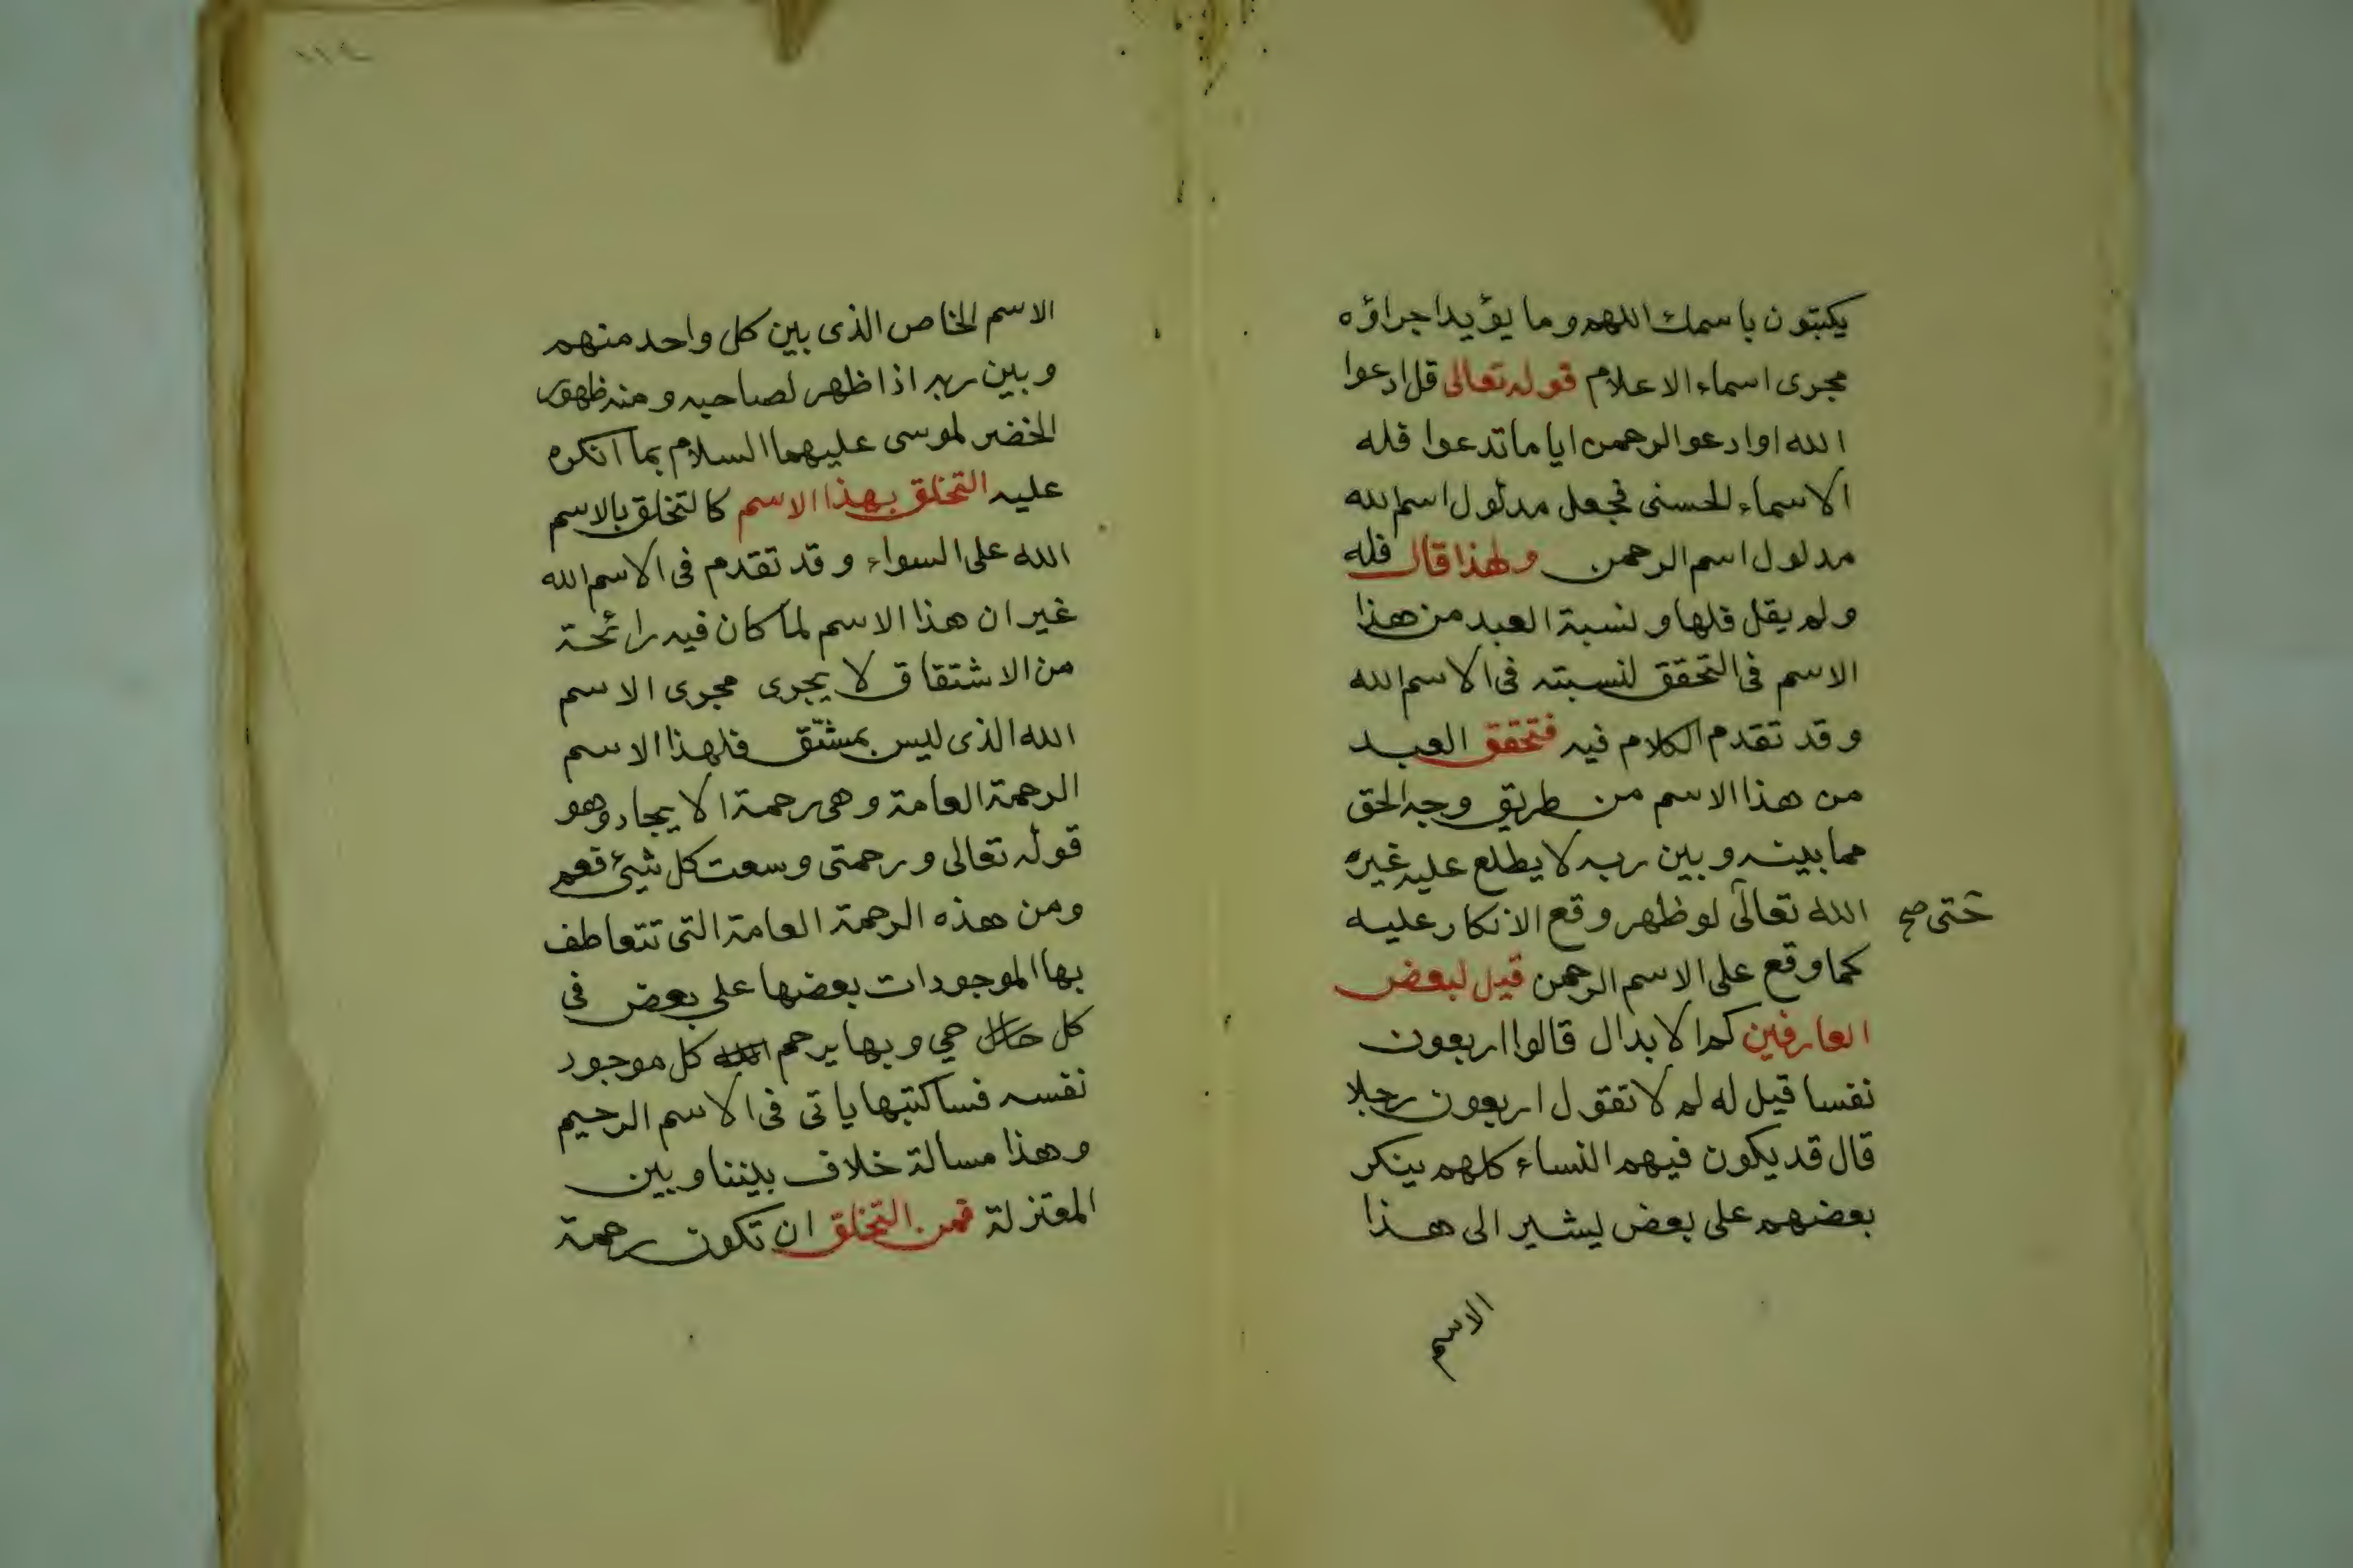 يكتبون باسمك اللهم وما يؤيد اجراؤه
مجرى اسماء الاعلام قوله تعالى قل ادعوا
الله او ادعوا الرحمن ايا ما تدعوا فله
الاسماء الحسنى فجعل مدلول اسم الله
مدلول اسم الرحمن ولهذا قال فله
ولم يقل فلها ونسبة العبد من هذا
الاسم فى التحقق لنسبته فى الاسم الله
وقد تقدم الكلام فيه فتحقق العبد
من هذا الاسم من طريق وجه الحق
مما بينه وبين ربه لا يطلع عليه غيره
الله تعالى لو ظهر وقع الانكار عليه
حتى صح
كما وقع على الاسم الرحمن قيل لبعض
العارفين كم الابدال قالوا اربعون
نفسا قيل له لم لا تقول اربعون رجلا
قال قد يكون فيهم النساء كلهم ينكر
بعضهم على بعض ليشير الى هذا
الاسم
١١٤
الاسم الخاص الذى بين كل واحد منهم
وبين ربه اذا ظهر لصاحبه ومنه ظهور
الخضر لموسى عليهما السلام بما انكره
عليه التخلق بهذا الاسم كالتخلق بالاسم
الله على السواء وقد تقدم فى الاسم الله
غير ان هذا الاسم لما كان فيه رائحة
من الاشتقاق لا يجرى مجرى الاسم
الله الذى ليس بمشتق فلهذا الاسم
الرحمة العامة وهى رحمة الايجاد وهو
قوله تعالى ورحمتى وسعت كل شيئ فعم
ومن هذه الرحمة العامة التى تتعاطف
بها الموجودات بعضها على بعض فى
كل حال حي وبها يرحم الله كل موجود
نفسه فساكتبها ياتى فى الاسم الرحيم
وهذا مسالة خلاف بيننا وبين
المعتزلة فمن التخلق ان تكون رحمة